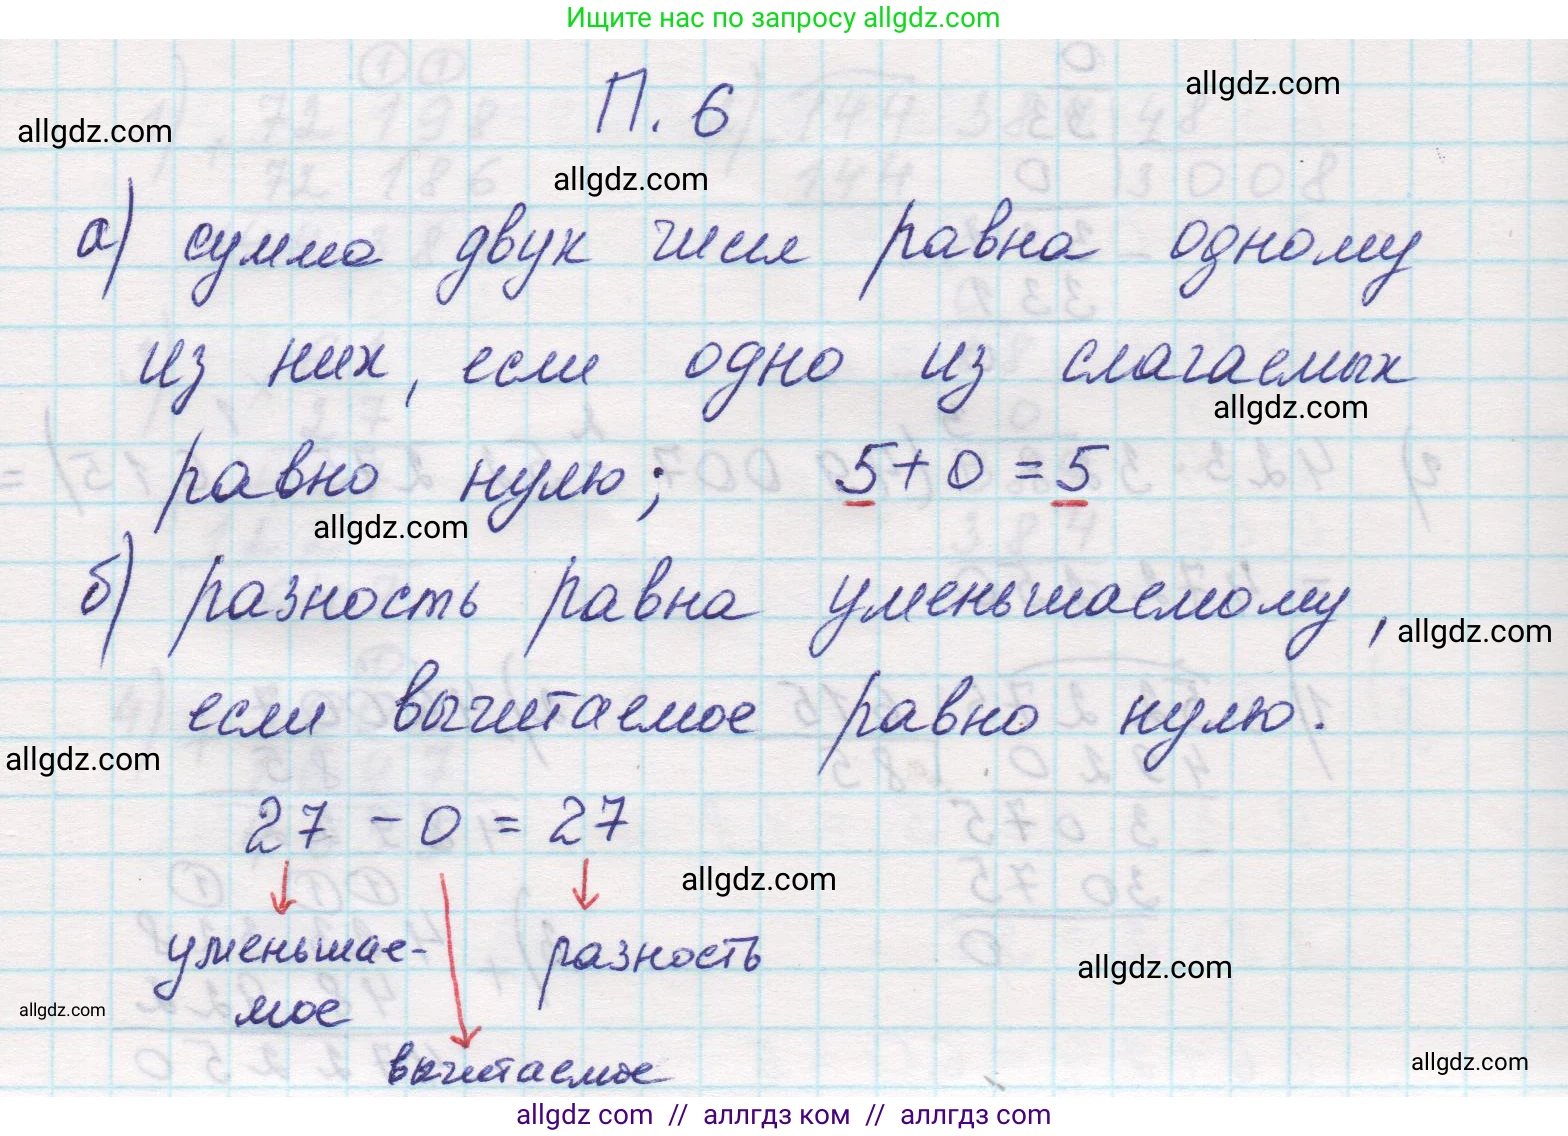 Ищите нас по запросу allgdz.com
П. 6
allgdz.com
allgdz.com
allgdz.com
а) сумма двух чисел равна одному
из них, если одно из слагаемых
allgdz.com
равно нулю; 5 + 0 = 5
allgdz.com
б) разность равна уменьшаемому,
allgdz.com
если вычитаемое равно нулю.
allgdz.com
27 - 0 = 27
allgdz.com
уменьшае- разность
allgdz.com
мое
allgdz.com
вычитаемое
allgdz.com
allgdz com // аллгдз ком // аллгдз com